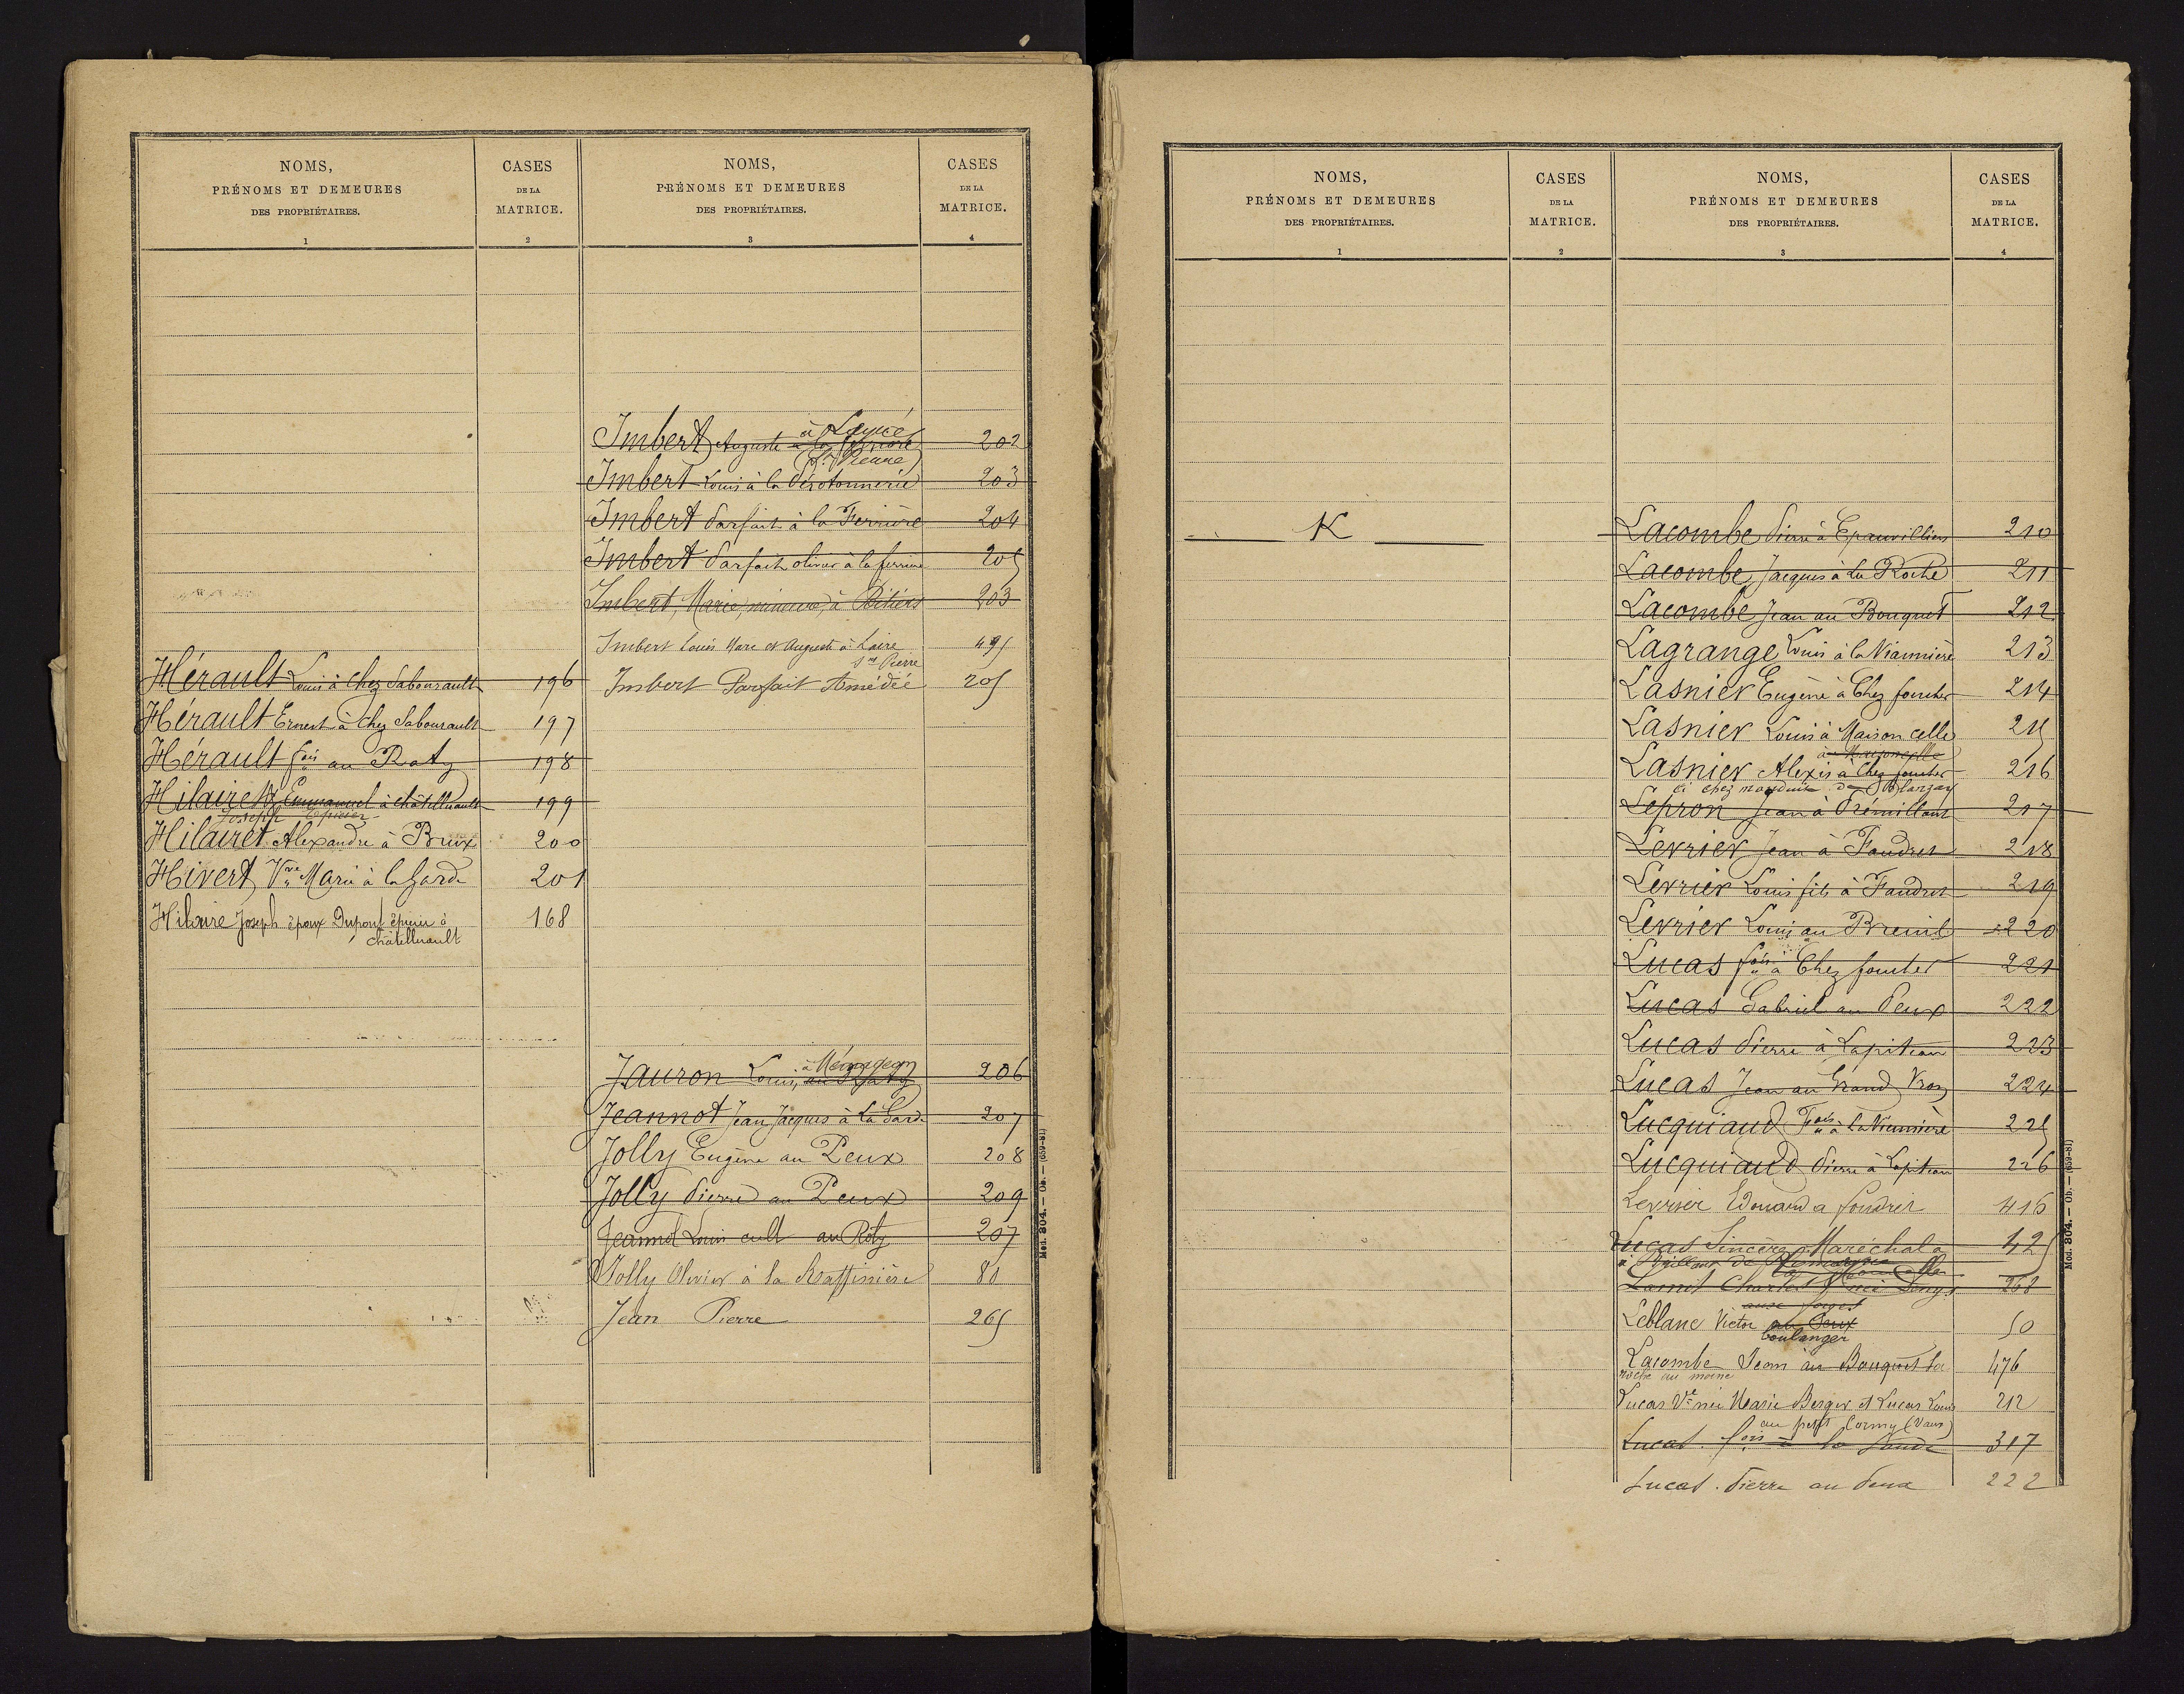 NOMS,
PRÉNOMS ET DEMEURES
DES PROPRIÉTAIRES.
1
CASES
DE LA
MATRICE.
2
Hérault Louis à Chez Sabourault 196
Hérault Ernest à Chez Sabourault 197
Hérault fois au Raty 198
Hilaire Emmanuel à Châtellerault 199
Joseph Épicier
Hilairet Alexandre à Brux 200
Hivert Vve Marie à la Garde 201
Hilaire Joseph époux Dupont épicier à 168
Châtellerault
NOMS,
PRÉNOMS ET DEMEURES
DES PROPRIÉTAIRES.
3
CASES
DE LA
MATRICE.
4
à Layré
Imbert Auguste à la ferrière 202
Imbert Louis à la 203
Imbert Parfait à la Ferrière 204
Imbert Parfait olivier à la ferrière 205
Imbert, Marie, mineure, à Poitiers 203
Imbert Louis Marc et Auguste à Laire 495
St Pierre
Imbert Parfait Amédée 205
Jauron Louis, 206
Jeannot Jean Jacques à La Garde 207
Jolly Eugène au Peux 208
Jolly Pierre au Peux 209
Jeannot Louis cult au Roty 207
Jolly Olivier à la Raffinière 80
Jean Pierre 265
Mod. 304. — Ob. — (659-81)
NOMS,
PRÉNOMS ET DEMEURES
DES PROPRIÉTAIRES.
1
CASES
DE LA
MATRICE.
2
K
NOMS,
PRÉNOMS ET DEMEURES
DES PROPRIÉTAIRES.
3
CASES
DE LA
MATRICE.
4
Lacombe Pierre à Epauvilliers 210
Lacombe Jacques à La Roche 211
Lacombe Jean au Bouquet 212
Lagrange Louis à la Viannière 213
Lasnier Eugène à Chez foucher 214
Lasnier Louis à Maisoncelle 215
à Maisoncelle
Lasnier Alexis à Chez foucher 216
Lepron Jean à 217
Levrier Jean à Faudret 218
Levrier Louis fils à Faudret 219
Levrier Louis au Breuil 220
Lucas fois à Chez foucher 221
Lucas Gabriel au Peux 222
Lucas Pierre à Lapiteau 223
Lucas Jean au Grand Vron 224
Lucquiaud Fois à la Viannière 225
Lucquiaud Pierre à Lapiteau 226
Levrier Edouard a foudret 416
Lucas Sincère Maréchal à 125
Charles 268
aux forges
Leblanc Victor au Peux 50
boulanger
Lacombe Jean au Bouquet la 476
roche au moine
Lucas Ve née Marie Berger et Lucas Louis 212
au petit Cormy (Vaux)
Lucas fois à la 317
Lucas Pierre au Peux 222
Mod. 304. — Ob. — (659-81)